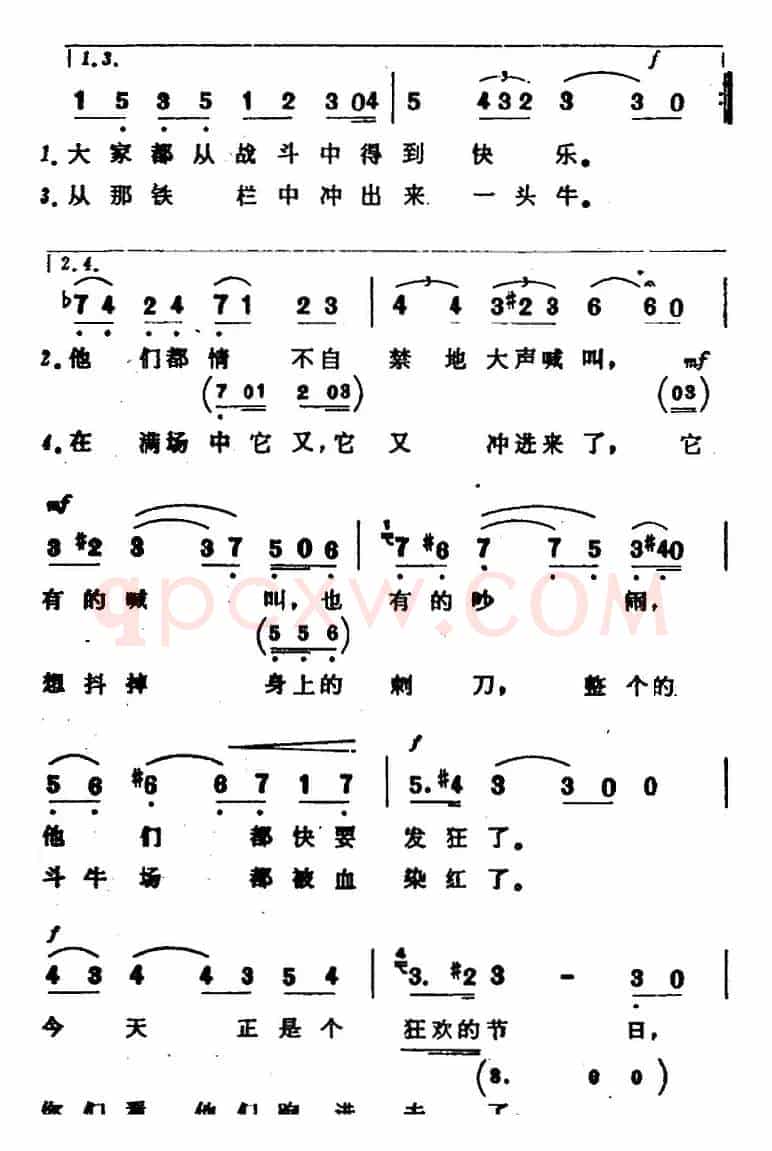 1.3. f
1 5 3 5 1 2 3 04 5 432 3 3 0
1.大家都从战斗中得到快乐。
3.从那铁栏中冲出来一头牛。
2.4.
♭7 4 2 4 7 1 2 3 4 4 3 #2 3 6 6 0
2.他们都情不自禁地大声喊叫， mf
(7 01 2 03) (03)
4.在满场中它又，它又冲进来了，它
mf
3 #2 3 3 7 5 0 6 1 7 #6 7 7 5 3 #4 0
有的喊叫，也有的吵闹，
qpcxw.COM
(5 5 6)
想抖掉身上的刺刀，整个的
f
5 6 #6 6 7 1 7 5. #4 3 3 0 0
他们都快要发狂了。
斗牛场都被血染红了。
f
4 3 4 4 3 5 4 4 3. #2 3 - 3 0
今天正是个狂欢的节日，
(3. 0 0)
你们看他们跑进去了